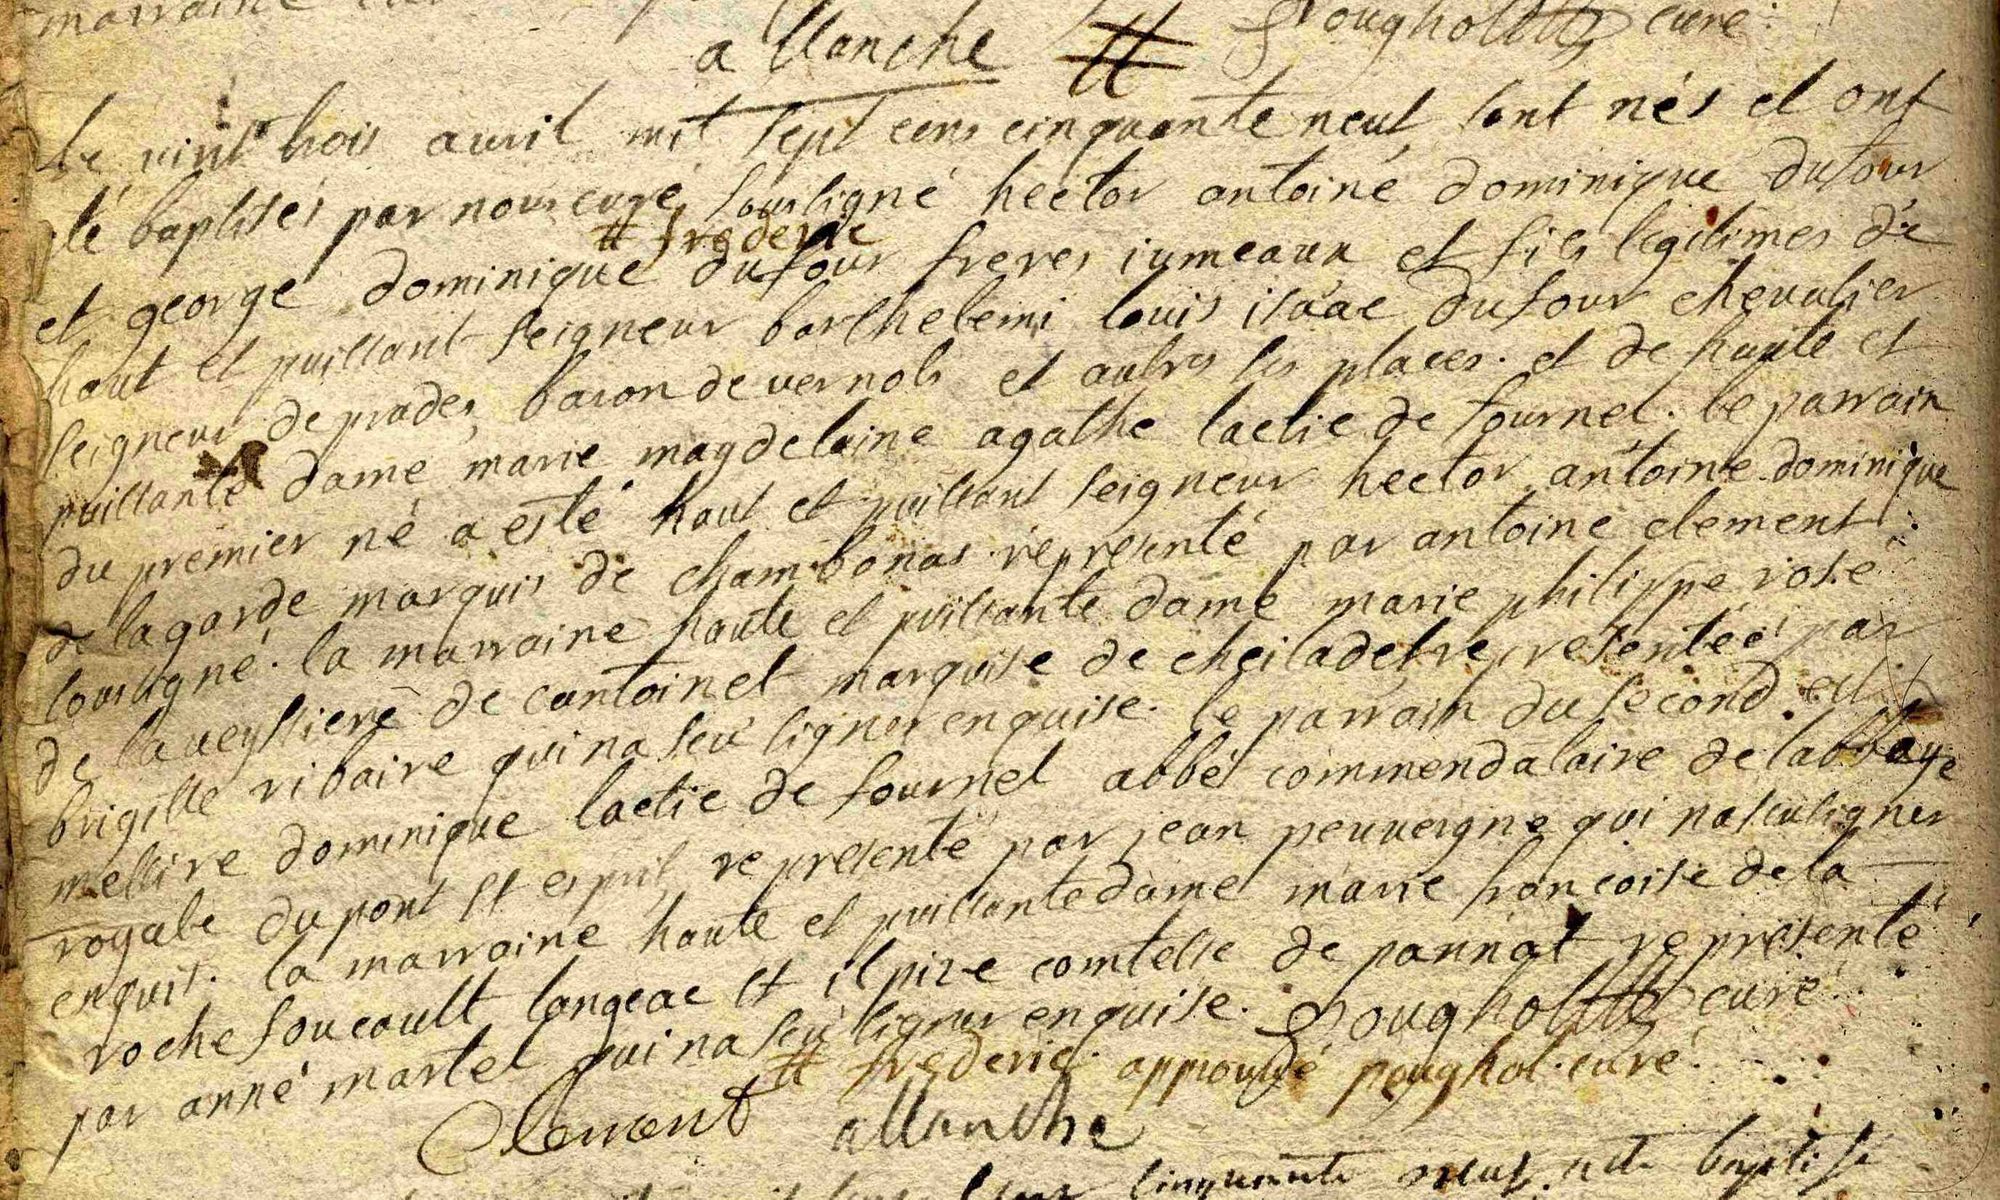 marraine
a allanche # Poughol curé
Le vint trois avril mil sept cens cinquante neuf sont nés et ont
été baptises par nous curé soussigné hector antoine dominique dufour
# frederic
et george dominique dufour freres iumeaux et fils legitimes de
haut et puissant seigneur barthelemi louis isaac dufour chevalier
seigneur de prades, baron de vernols et autres ses places. et de haute et
puissante dame marie magdelaine agathe lastic de fournel. le parrain
du premier né a esté haut et puissant seigneur hector antoine dominique
de lagarde marquis de chambonas representé par antoine clement
soussigné. la marraine haute et puissante dame marie philippe rose
de laveyssiere de cantoinet marquise de cheiladet representée par
brigitte ribaire qui na seu signer enquise. le parrain du second est
messire dominique lastic de fournel abbé commendataire de labbaye
royale du pont st esprit representé par jean peuvergne qui na seu signer
enquis. la marraine haute et puissante dame marie francoise de la
rochefoucault langeac et espire comtesse de pannat representé
par anne martel qui na seu signer enquise. Poughol curé
# frederic approuvé poughol curé
Clement allanche
cinquante neuf, a ete baptise